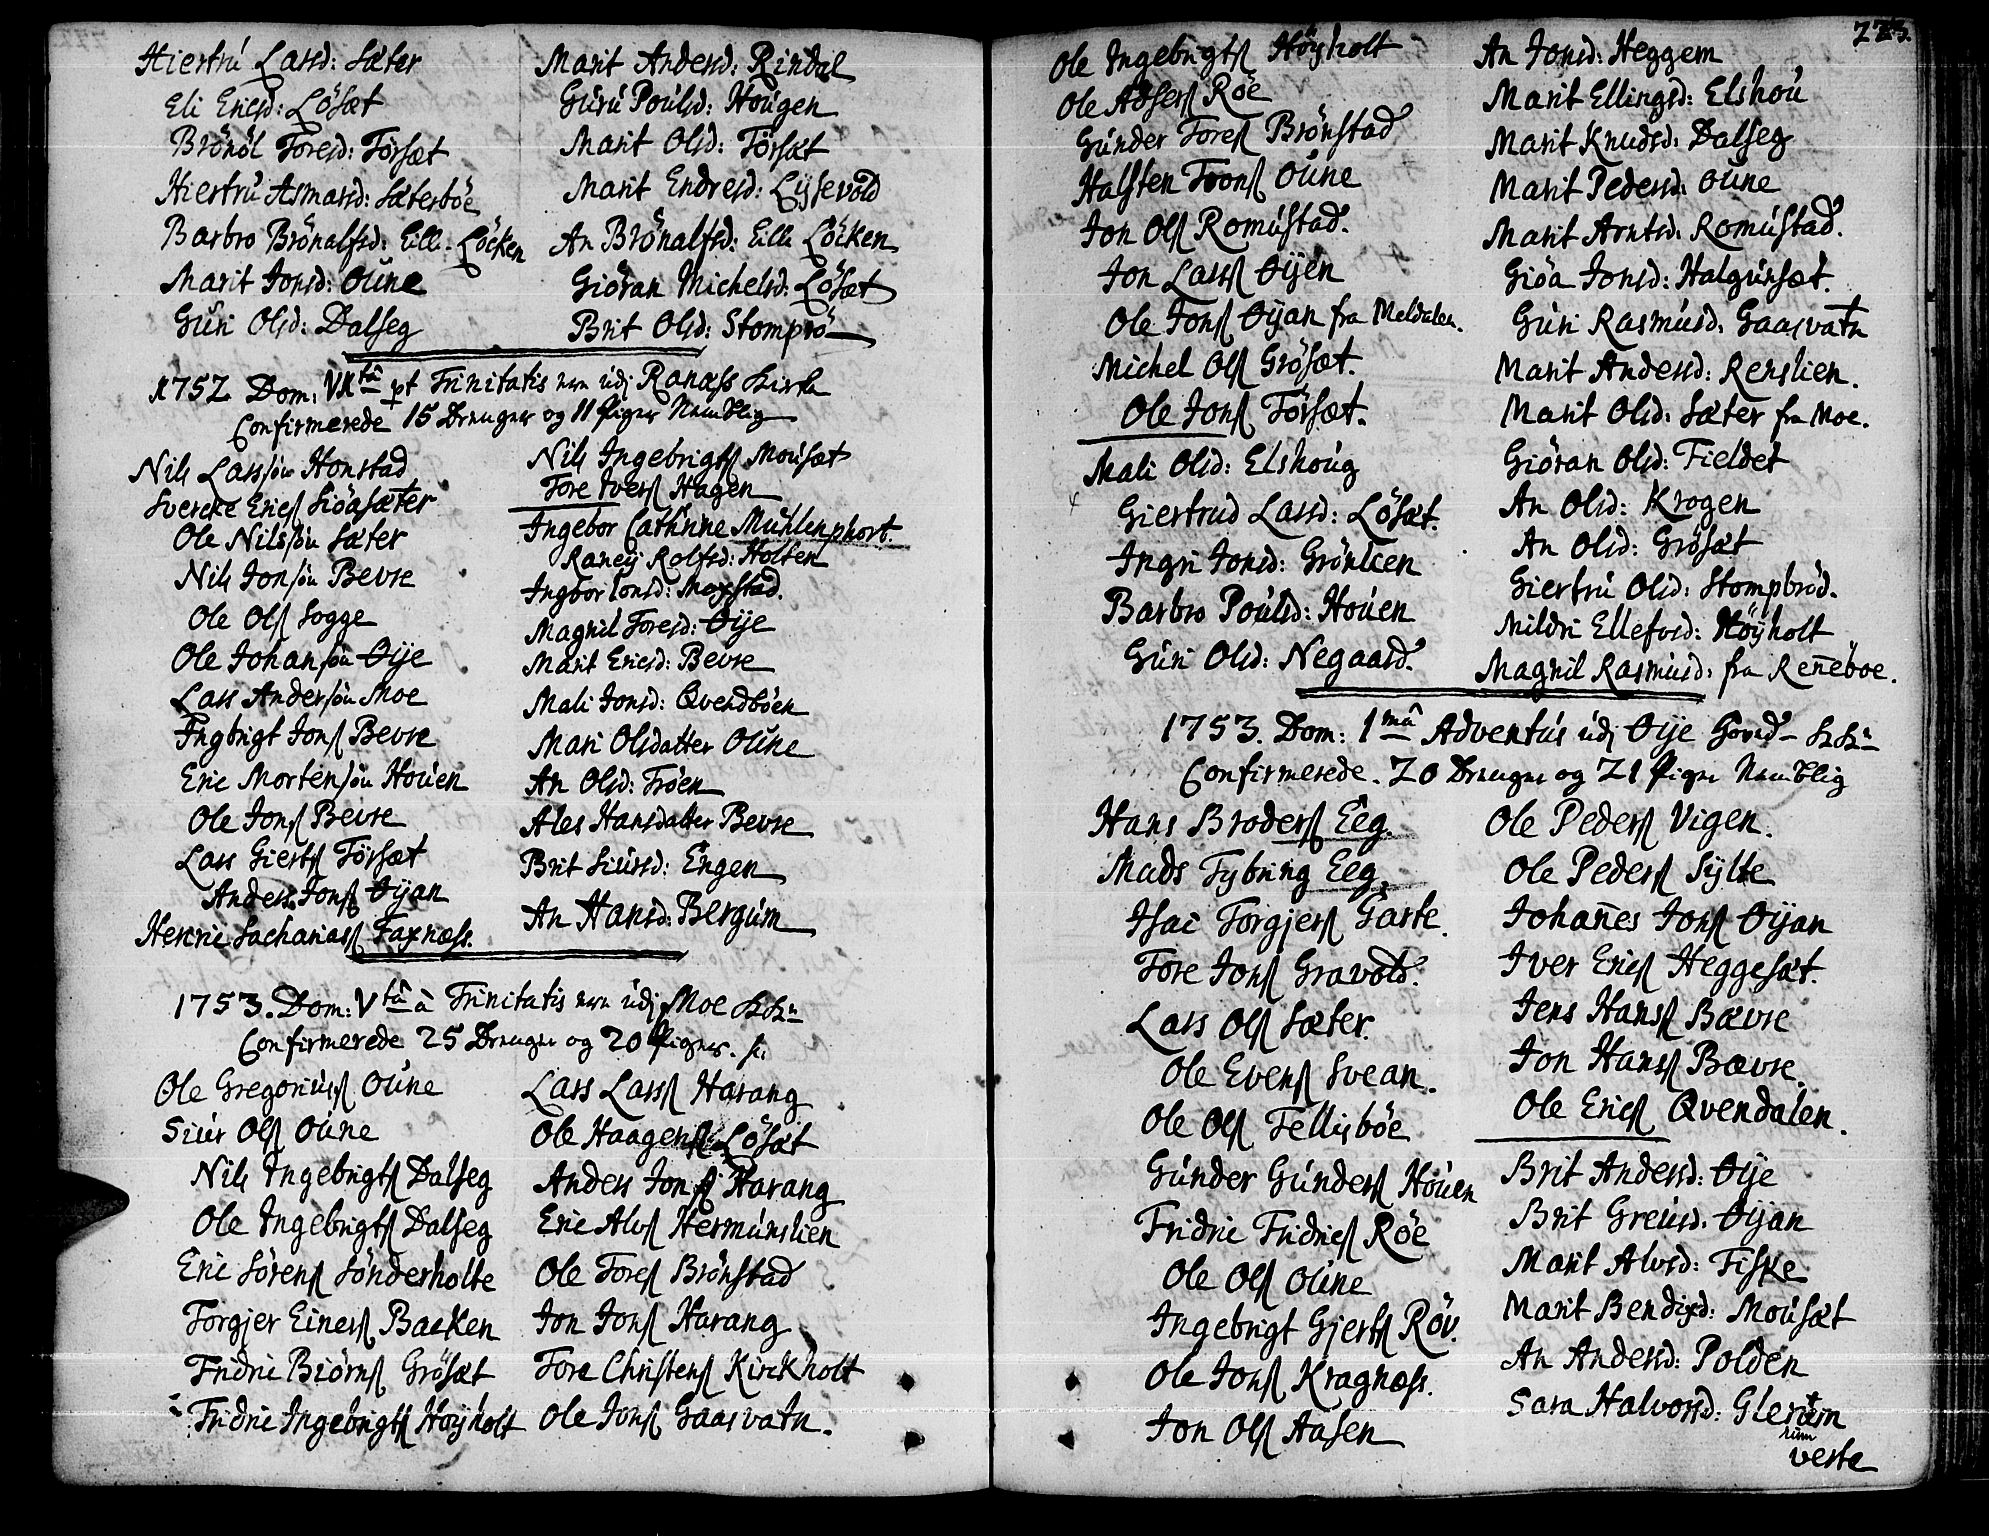 Hiertrú Larsd: Sæter
Eli Ericsd: Lösæt
Brönöl Toresd: Törsæt
Hiertrú Asmarsd: Sæterböe
Barbro Brönalfsd: Lill. Löcken
Marit Jonsd: Oúne
Gúri Olsd: Dalseg
Marit Andersd: Rindal
Gúrú Poúlsd: Hoúgen
Marit Olsd: Törsæt
Marit Endresd: Lysevold
An Brönalfsd: Lill Löcken
Giöran Michelsd: Lösæt
Brit Olsd: Stomprö
1752. Dom: VII tâ pt Trinitatis udj Ranæss Kirke
Confirmerede 15 Drenger og 11 Piger Nembl̃ig
Nils Larssøn Honstad
Svercke Ericſ Siöasæter
Ole Nilssøn Sæter
Nils Jonsøn Bevre
Ole Olſ Sogge
Ole Johansøn Øije
Lars Andersøn Moe
Ingbrigt Jonſ Bevre
Eric Mortensøn Hoúen
Ole Jonſ Bevre
Lars Giertſ Törsæt
Anders Jonſ Øijan
Henric Sachariasſ Faxnæss.
Nils Ingebrigtſ Moúsæt
Tore Iversſ Hagen
Ingebor Cathrine Múhlenphort.
Raneij Rolfsd: Holten
Ingbor Jonsd: Moxstad.
Magnil Toresd: Øije
Marit Ericsd: Bevre
Mali Jonsd: Qvendböen
Mari Olsdatter Oúne
An Olsd: Tröen
Ales Hansdatter Bevre
Brit Siúrsd: Engen
An Hansd: Bergúm
1753. Dom: V tâ à Trinitatis udj Moe Kk:
Confirmerede 25 Drenger og 20 Piger. s.
Ole Gregoriúsſ Oúne
Siúr Olſ Oúne
Nils Ingebrigtſ Dalseg
Ole Ingebrigtſ Dalseg
Eric Sörensſ Sönderholte
Torgjer Einersſ Backen
Fridric Biörnſ Grösæt
Fridric Ingebrigtſ Höyholt
Lars Larsſ Harang
Ole Haagensſ Lösæt
Anders Jonſ Harang
Eric Alvſ Hermúnslien
Ole Toreſ Brönstad
Jon Jonſ Harang
Tore Christensſ Kirckholt
Ole Jonſ Gaasvatn.
223.
Ole Ingebrigtſ Höyholt
Ole Adsersſ Röe
Gúnder Toreſ Brönstad
Halsten Tronſ Oúne
Jon Olſ Romúnstad.
Jon Larsſ Øijen
Ole Jonſ Øijan fra Meldalen.
Michel Olſ Grösæt.
Ole Jonſ Törsæt.
Mali Olsd: Elshoúg
Giertrud Larsd: Lösæt.
Ingri Jonsd: Grönlien
Barbro Poúlsd: Hoúen
Gúri Olsd: Negaard.
An Jonsd: Heggem
Marit Ellingsd: Elshoú
Marit Knudsd: Dalseg
Marit Pedersd: Oúne
Marit Arntsd: Romúnstad.
Giöa Jonsd: Halgúnsæt.
Gúri Rasmúsd: Gaasvatn
Marit Andersd: Renslien.
Marit Olsd: Sæter fra Moe.
Giöran Olsd: Fieldet
An Olsd: Krogen
An Olsd: Grösæt
Giertrú Olsd: Stompbröd.
Mildri Ellefsd: Höyholt
Magnil Rasmúsd: fra Rennebøe.
1753. Dom: 1 mâ Adventús udj Øije Hoved Kk:
Confirmerede. 20 Drenge og 21 Piger Nembl̃ig
Hans Brodersſ Eeg.
Mads Tybring Eeg
Isac Torgjersſ Garte.
Tore Jonſ Gravold.
Lars Olſ Sæter.
Ole Evensſ Svean.
Ole Olſ Fellisböe
Gúnder Gúndersſ Hoúen
Fridric Fridricſ Röe
Ole Olſ Oúne
Ingebrigt Gjertſ Röv.
Ole Jonſ Kragnæss.
Jon Olſ Aasen
Ole Pedersſ Vigen.
Ole Pedersſ Sylte
Johannes Jonſ Øijan
Iver Ericſ Heggesæt.
Jens Hansſ Bævre
Jon Hansſ Bævre.
Ole Ericſ Qvendalen.
Brit Andersd: Øije
Brit Greúsd: Øijan
Marit Alvsd: Fiske
Marit Bendixd: Moúsæt
An Andersd: Polden
Sara Halvorsd: Glerúm
rúm
verte